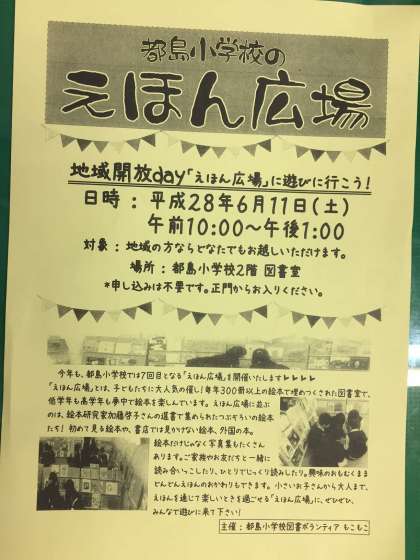 都島小学校の
えほん広場
地域開放day「えほん広場」に遊びに行こう！
日時：平成28年6月11日(土)
午前10:00～午後1:00
対象：地域の方ならどなたでもお越しいただけます。
場所：都島小学校2階 図書室
*申し込みは不要です。正門からお入りください。
今年も、都島小学校では7回目となる「えほん広場」を開催いたします
「えほん広場」とは、子どもたちに大人気の催し！毎年300冊以上の絵本で埋めつくされた図書室で、
低学年も高学年も夢中で絵本を楽しんでいます。えほん広場に並ぶ
のは、絵本研究家加藤啓子さんの選書で集められたつぶぞろいの絵本
たち！初めて見る絵本や、書店では見かけない絵本、外国の本。
絵本だけじゃなく写真集もたくさん
あります。ご家族やお友だちと一緒に
読み合いっこしたり、ひとりでじっくり読みしたり。興味のおもむくまま
どんどんえほんのおかわりもできます。小さいお子さんから大人まで、
えほんを通じて楽しいときを過ごせる「えほん広場」に、ぜひぜひ、
みんなで遊びに来て下さい！
主催：都島小学校図書ボランティア もこもこ